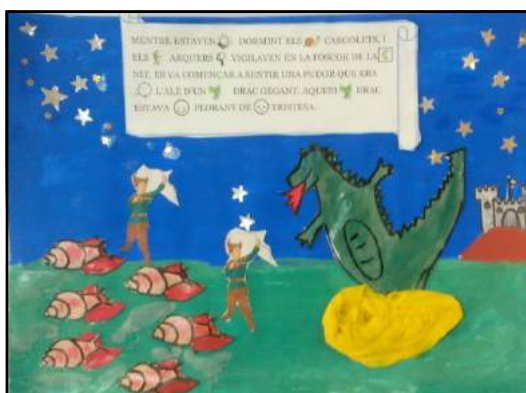 MENTRE ESTAVEN DORMINT ELS CARGOLETS, I
ELS ARQUERS VIGILAVEN EN LA FOSCOR DE LA
NIT, ES VA COMENÇAR A SENTIR UNA PUDOR QUE ERA
L'ALÈ D'UN DRAC GEGANT. AQUEST DRAC
ESTAVA PLORANT DE TRISTESA.